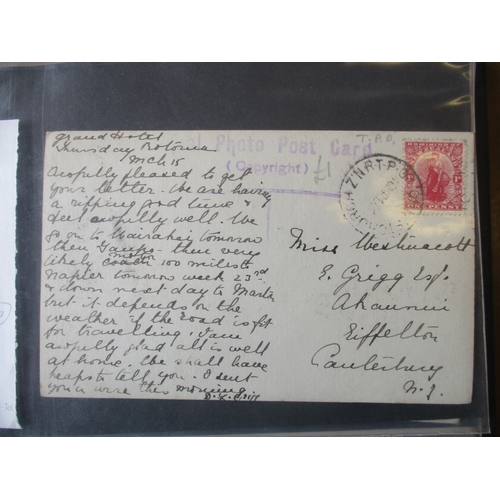 Grand Hotel
Thursday Rotorua
Mch 15
Awfully pleased to get
your letter. We are having
a ripping good time &
feel awfully well. We
go on to Wairakei tomorrow
then Taupo then very
likely motor coach 100 miles to
Napier tomorrow week 23rd
& down next day to Marton
but it depends on the
weather if the road is fit
for travelling. I am
awfully glad all is well
at home. We shall have
heaps to tell you. I sent
you a wire this morning
Photo Post Card
(Copyright)
£1
T.P.O.
N.Z.R.T.P.O
PENNY
Miss Westmacott
E. Grigg Esq.
Eiffelton
Canterbury
N.Z.